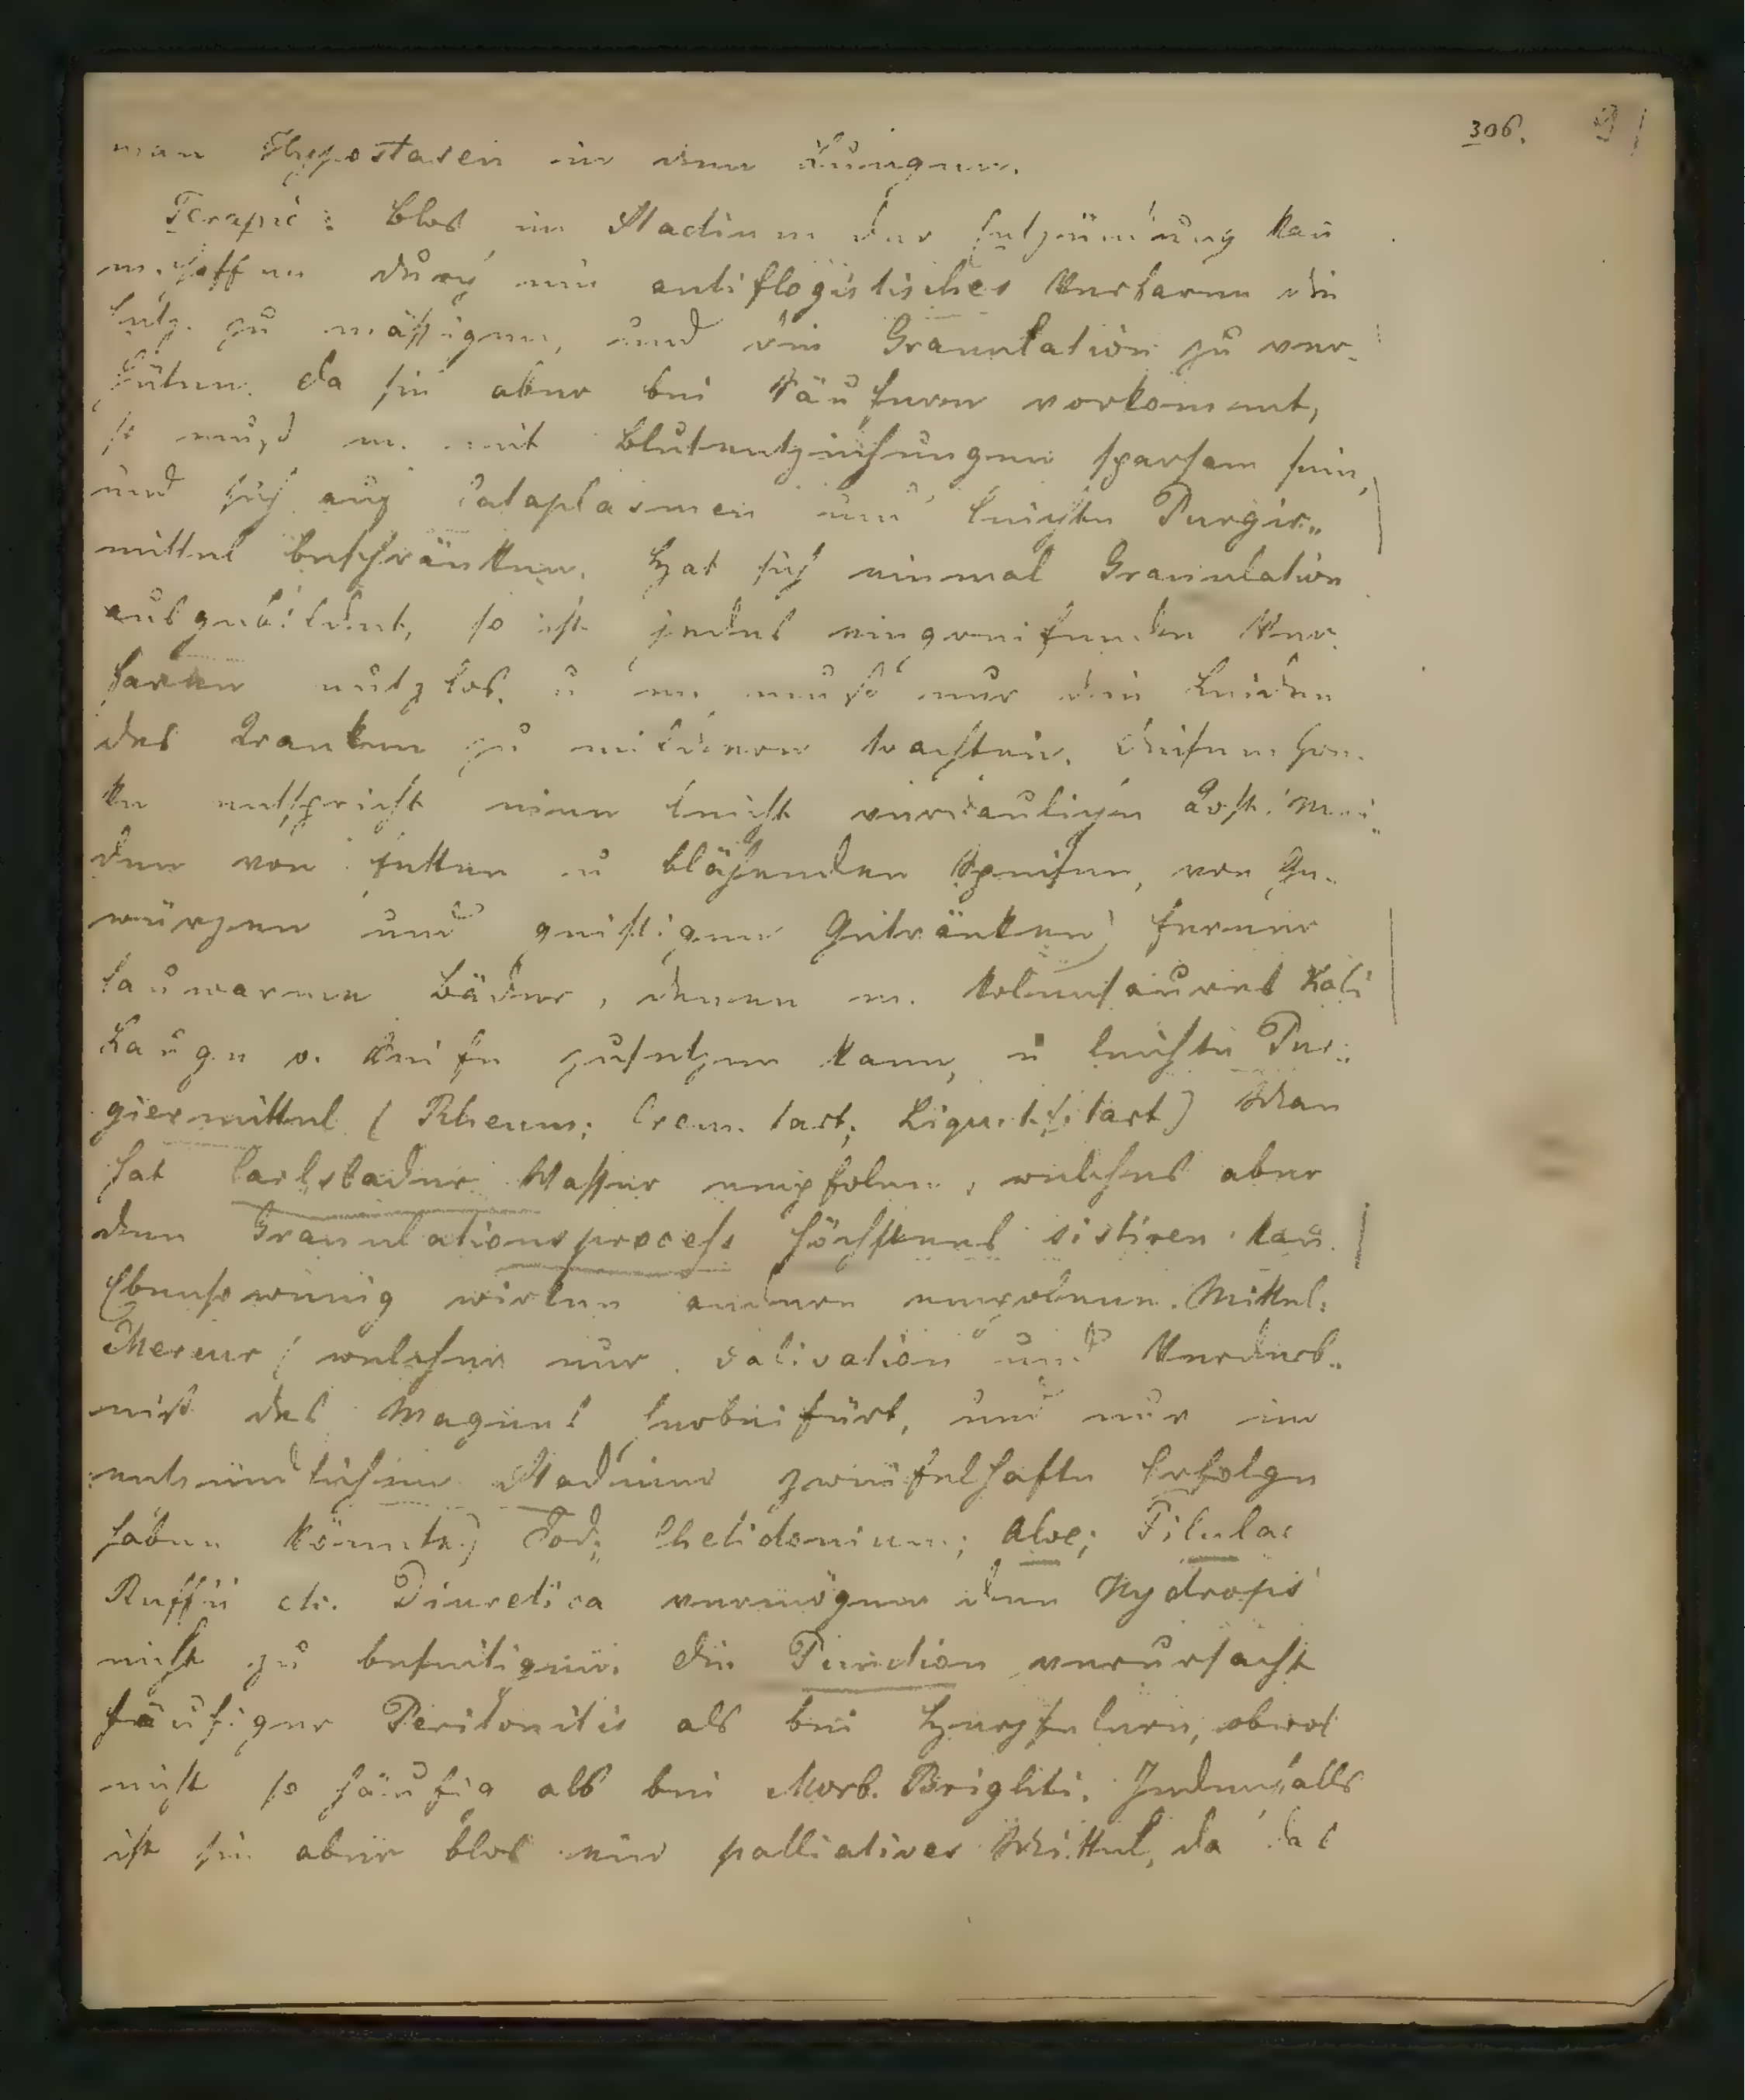 306. 91
man Hypostasen in den Lungen.
Terapie: Blos im Stadium der Entzündung kan̄
m. hoffen durch ein antiflogistisches Verfaren die
Entz. zu mässigen, und die Granulation zu ver-
hüten. da sie aber bei Säufern vorkommt,
so muss m. mit Blutentziehungen sparsam sein,
und sich auf Cataplasmen und leichte Purgir-
mittel beschränken. Hat sich einmal Granulation
ausgebildet, so ist jedes eingreifenden Ver-
faren nutzlos. u m muss nur die Leiden
des Kranken zu mildern trachten. diesem Zwe-
ke entspricht eine leicht verdauliche Kost, Mei-
den von fetten u blähenden Speisen, von Ge-
würzen und geistigen Getränken, ferner
lauwarmen Bäder, denen m. kolensaures Kali
Lauge o. Seife zusetzen kann, u leichte Pur-
giermittel (Rheum; Crem. tart; Liqu. tart) Man
hat Carlsbader Wasser empfolen, welches aber
den Granulationsprocess höchstens sistiren kan̄.
Ebensowenig wirken andere empfolenen Mittel:
Mercur (welcher nur Salivation und Verderb-
niss des Magens herbeifürt, und nur im
entzündlichen Stadium zweifelhafte Erfolge
haben könnte) Jod; Chelidonium; Aloe; Pilulae
Ruffii etc. Diuretica vermögen den Hydrops
nicht zu beseitigen. die Punction verursacht
häufiger Peritonitis als bei Herzfelern, obwol
nicht so häufig als bei Morb. Brighti. Jedenfalls
ist sie aber blos ein palliatives Mittel, da das